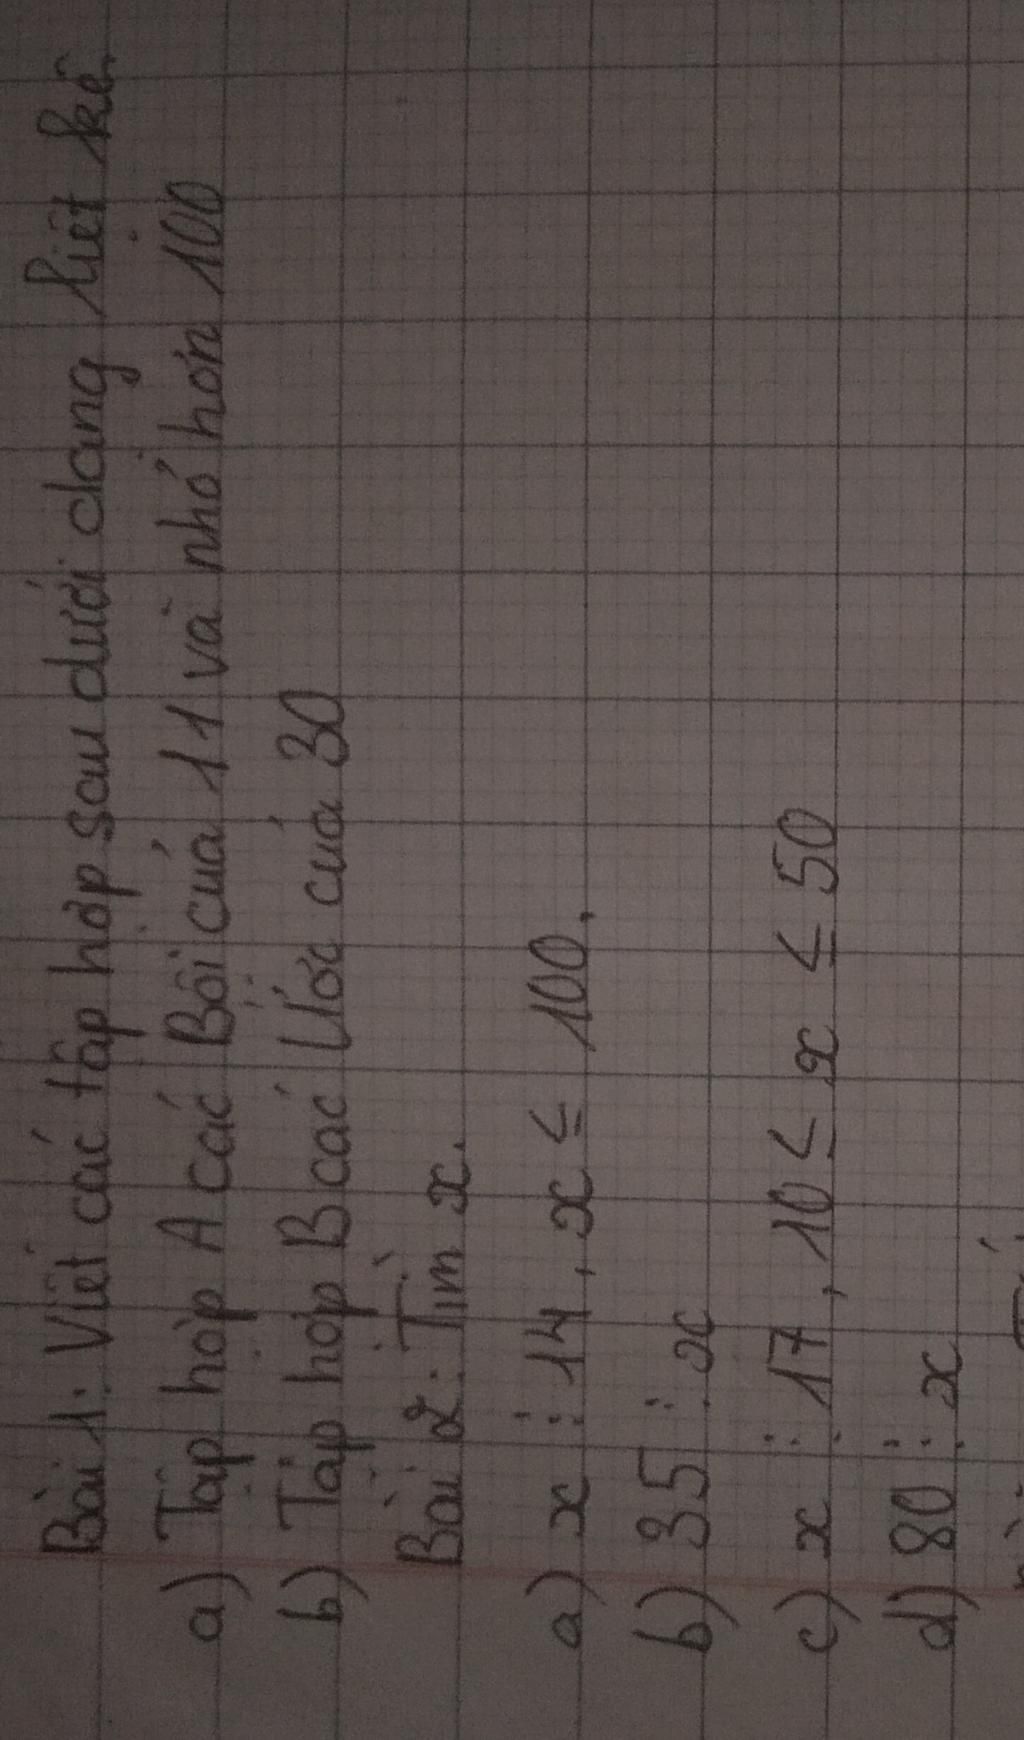 Bài 1: Viết các tập hợp sau dưới dạng liệt kê.
a) Tập hợp A các Bội của 11 và nhỏ hơn 100
b) Tập hợp B các Ước của 30
Bài 2: Tìm x.
a) x ⋮ 14, x ≤ 100.
b) 35 ⋮ x
c) x ⋮ 17, 10 ≤ x ≤ 50
d) 80 ⋮ x